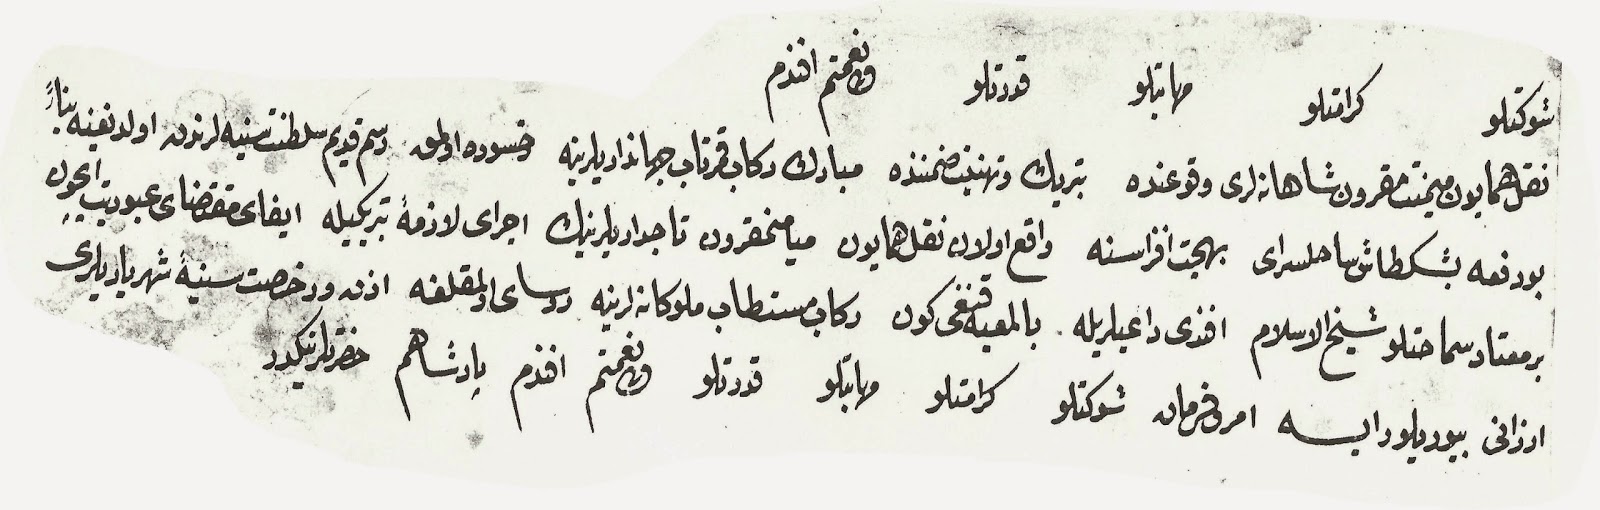 شوكتلو كرامتلو مهابتلو قدرتلو ولینعمتم افندم
نقل همايون ميمنتمقرون شاهانه لرى وقوعنده تبريك وتهنيت ضمننده مبارك ركاب قمرتاب جهانداريلرينه رخسوده اولمق رسم قديم سلطنت سنيه لرندن اولديغنه بناءً
بو دفعه بشكطاش ساحلسراى بهجت افزاسنه واقع اولان نقل همايون ميامنمقرون تاجداريلرينك اجراى لازمۀ تبريكيله ايفاى مقتضاى عبوديت ايچون
بر معتاد سماحتلو شيخ الاسلام افندى داعيلريله بالمعيه قنغى كون ركاب مستطاب ملوكانه لرينه روسای اولمقلغه اذن ورخصت سنيۀ شهرياريلرى
ارزانى بيوريلور ايسه امر وفرمان شوكتلو كرامتلو مهابتلو قدرتلو ولینعمتم افندم پادشاهم حضرتلرينكدر